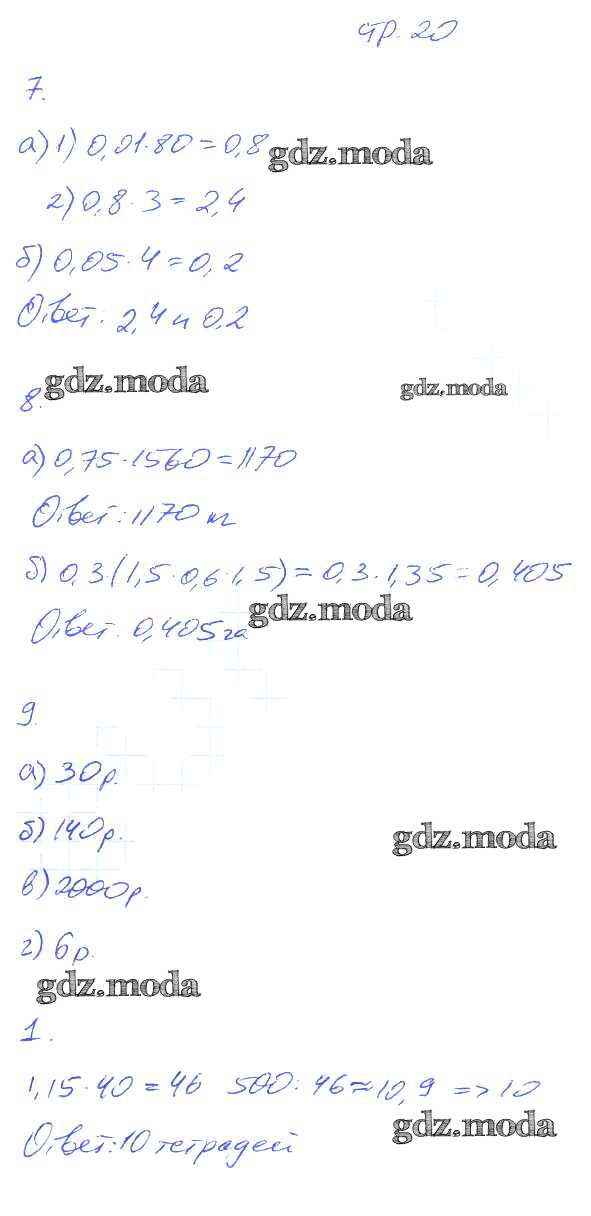 стр. 20
7.
а) 1) 0,01·80=0,8
gdz.moda
2) 0,8·3=2,4
б) 0,05·4=0,2
Ответ: 2,4 и 0,2
gdz.moda
gdz.moda
8.
а) 0,75·1560=1170
Ответ: 1170 т
б) 0,3·(1,5·0,6·1,5)=0,3·1,35=0,405
gdz.moda
Ответ. 0,405 га
9.
а) 30р.
б) 140р.
gdz.moda
в) 2000р.
г) 6р.
gdz.moda
1.
1,15·40=46 500:46≈10,9 => 10
gdz.moda
Ответ: 10 тетрадей